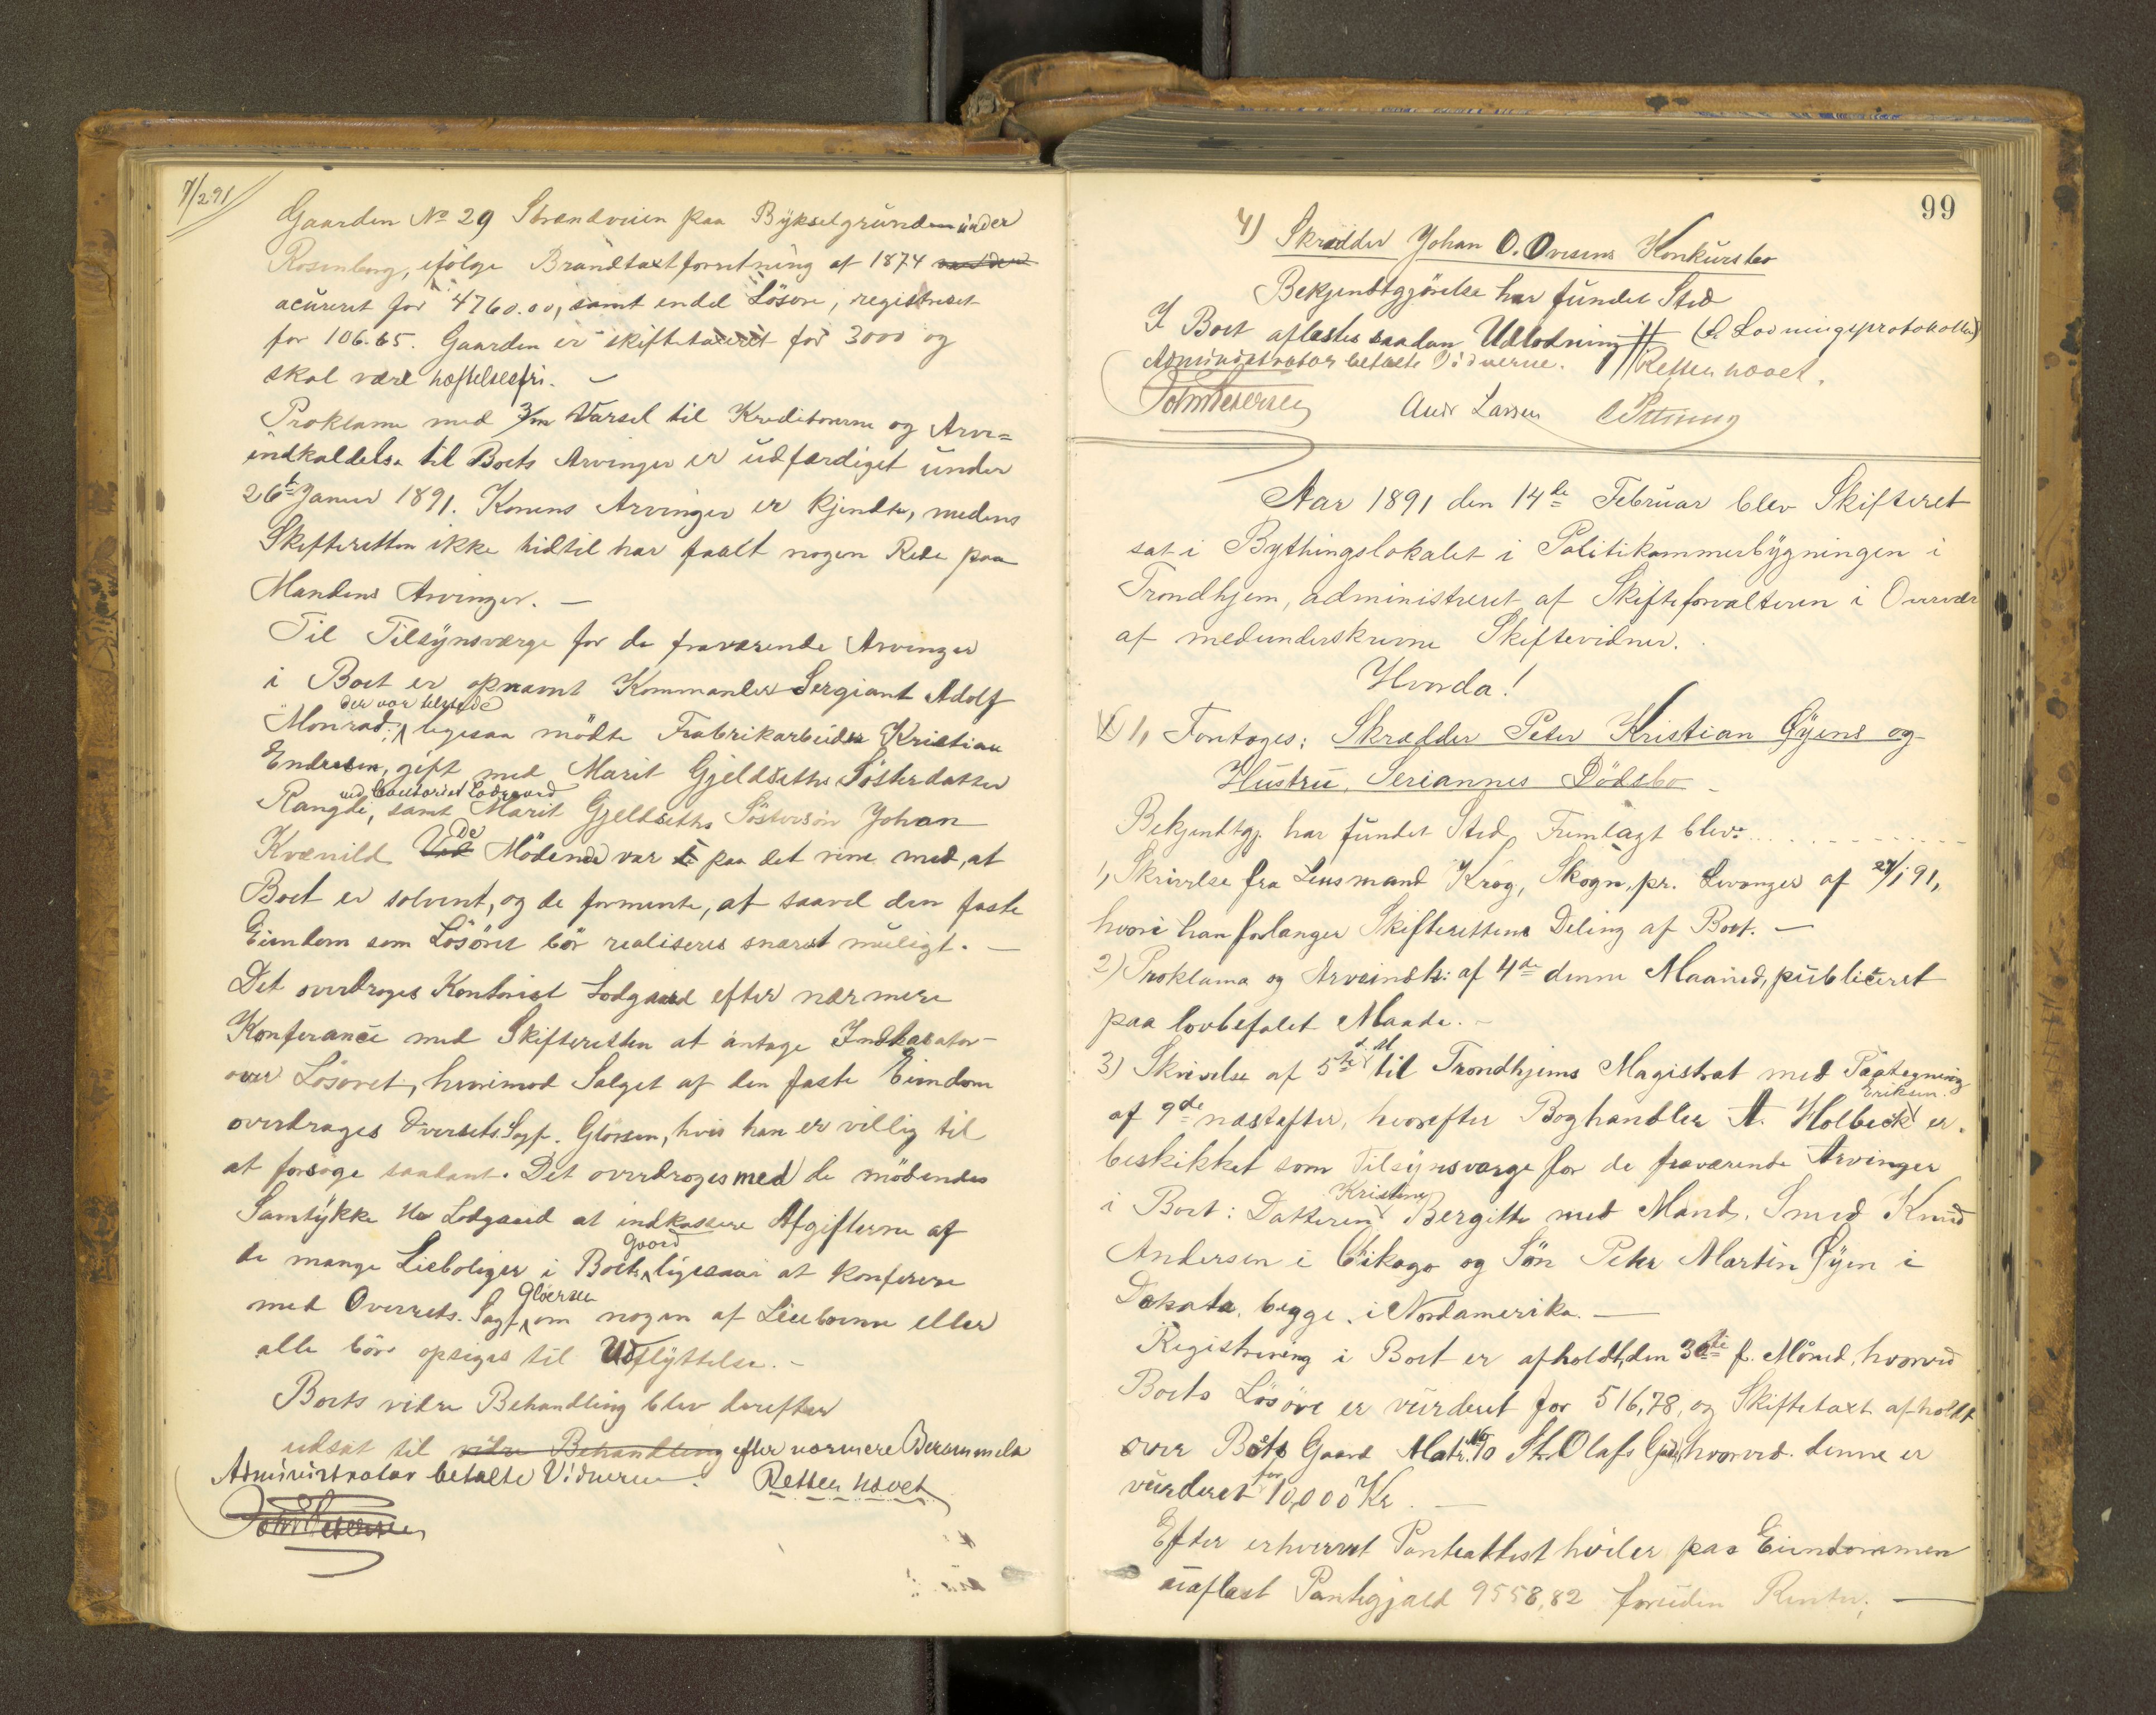 7/2 91
Gaarden No 29 Strandveien paa Bykselgrunden under
Rosenborg, ifølge Brandtaxtforretning af 1874
acureret for 4760.00, samt endel Løsøre, registreret
for 106.65. Gaarden er skiftetaxeret for 3000 og
skal være hæftelsesfri. —
Proklama med 3/m Varsel til Kreditorerne og Arve=
indkaldelse til Boets Arvinger er udfærdiget under
26t Januar 1891. Konens Arvinger er kjendte, medens
Skifteretten ikke hidtil har faaet nogen Rede paa
Mandens Arvinger. —
Til Tilsynsværge for de fraværende Arvinger
i Boet er opnævnt Kommander Sergiant Adolf
der var tilstede
Monrad; ligesaa mødte Fabrikarbeider Kristian
Endresen, gift med Marit Gjeldseths Søsterdatter
ved Contorist Lodgaard
Rangdi, samt Marit Gjeldseths Søstersøn Johan
Kvenild. Ved De Mødende var paa det rene med, at
Boet er solvent, og de formente, at saavel den faste
Eiendom som Løsøret bør realiseres snarest muligt. —
Det overdroges Kontorist Lodgaard efter nærmere
Konferance med Skifteretten at antage Indkasator
over Løsøret, hvorimod Salget af den faste Eiendom
overdrages Overrets. Sagf. Gløersen, hvis han er villig til
at forsøge saadant. Det overdroges med de mødendes
Samtykke Hr Lodgaard at indkassere Afgifterne af
Gaard
de mange Leieboliger i Boets, ligesaa at konferere
Gløersen
med Overrets. Sagf. om nogen af Leieboerne eller
alle bør opsiges til Udflyttelse. —
Boets videre Behandling blev derefter
udsat til videre Behandling efter nærmere Berammelse
Administrator betalte Vidnerne. Retten hævet
99
4) Skrædder Johan O. Ovesens Konkursbo
Bekjendtgjørelse har fundet Sted
I Boet aflæstes saadan Udlodning (cfr Lodningsprotokollen)
Administrator betalte Vidnerne. Retten hævet.
John Petersen Andr Larsen
Aar 1891 den 14de Februar blev Skifteret
sat i Bythingslokalet i Politikammerbygningen i
Trondhjem, administreret af Skifteforvalteren i Overvær
af medunderskrevne Skiftevidner.
Hvorda!
1, Foretoges: Skrædder Peter Kristian Øyens og
Hustru, Seriannes Dødsbo —
Bekjendtgj. har fundet Sted. Fremlagt blev:
1, Skrivelse fra Lensmand Krog, Skogn, pr. Levanger af 27/1 91,
hvori han forlanger Skifterettens Deling af Boet. —
2) Proklama og Arveindk: af 4de denne Maaned, publiceret
paa lovbefalet Maade. —
d. M
3) Skrivelse af 5te til Trondhjems Magistrat med Paategning
Eriksen
af 9de næstefter, hvorefter Boghandler A. Holbæck er
beskikket som Tilsynsværge for de fraværende Arvinger
Kristine
i Boet: Datteren Bergitte med Mand, Smed Knud
Andersen i Chikago og Søn Peter Martin Øyen i
Dakata, begge i Nordamerika. —
Registrering i Boet er afholdt, den 30te f. Måned, hvorved
Boets Løsøre er vurderet for 516,78, og Skiftetaxt afholdt
over Boets Gaard Matr. No 10 St. Olafs Gade, hvorved denne er
for
vurderet 10,000 Kr. —
Efter erhvervet Panteattest hviler paa Eiendommen
uaflæst Pantegjæld 9558,82 foruden Renter. —